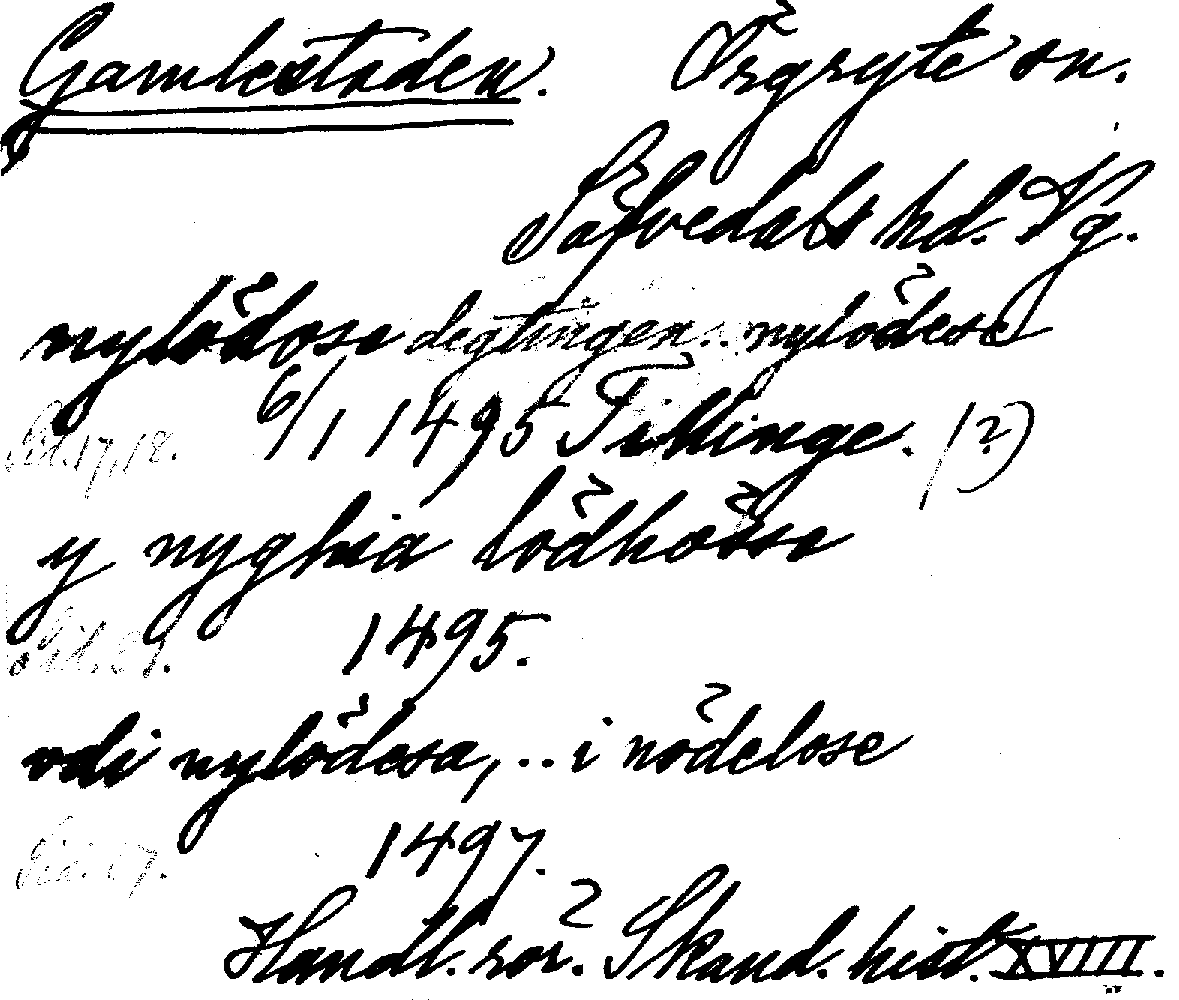 Gamlestaden. Örgryte sn.
Säfvedals hd. Vg.
nylödose degtingen.. nylödese
Sid. 17, 18. 6/1 1495 Tillinge. (?)
y nyghia lödhösse
Sid. 31. 1495.
vdi nylödesa, .. i nödelose
Sid. 17. 1497.
Handl. rör. Skand. hist. XVIII.